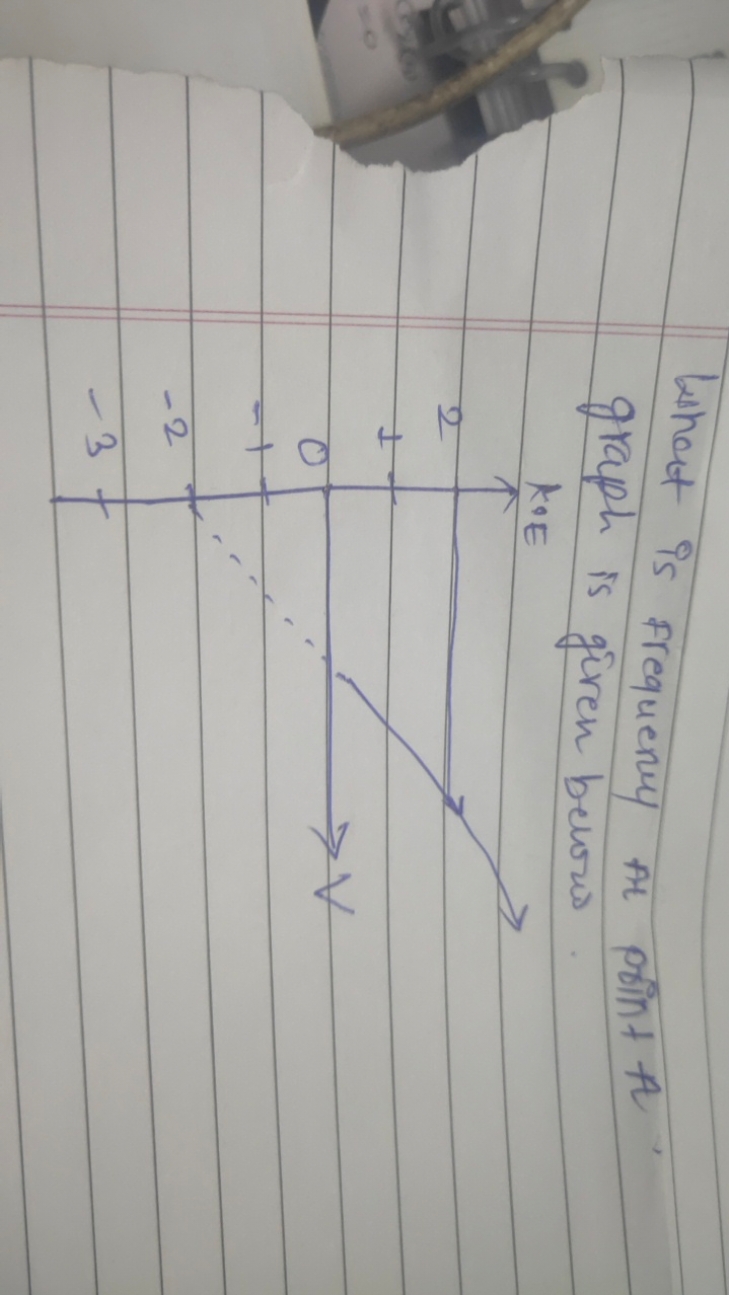 What is frequency At point A.
graph is given below.
K.E
2
1
0
-1
-2
-3
V